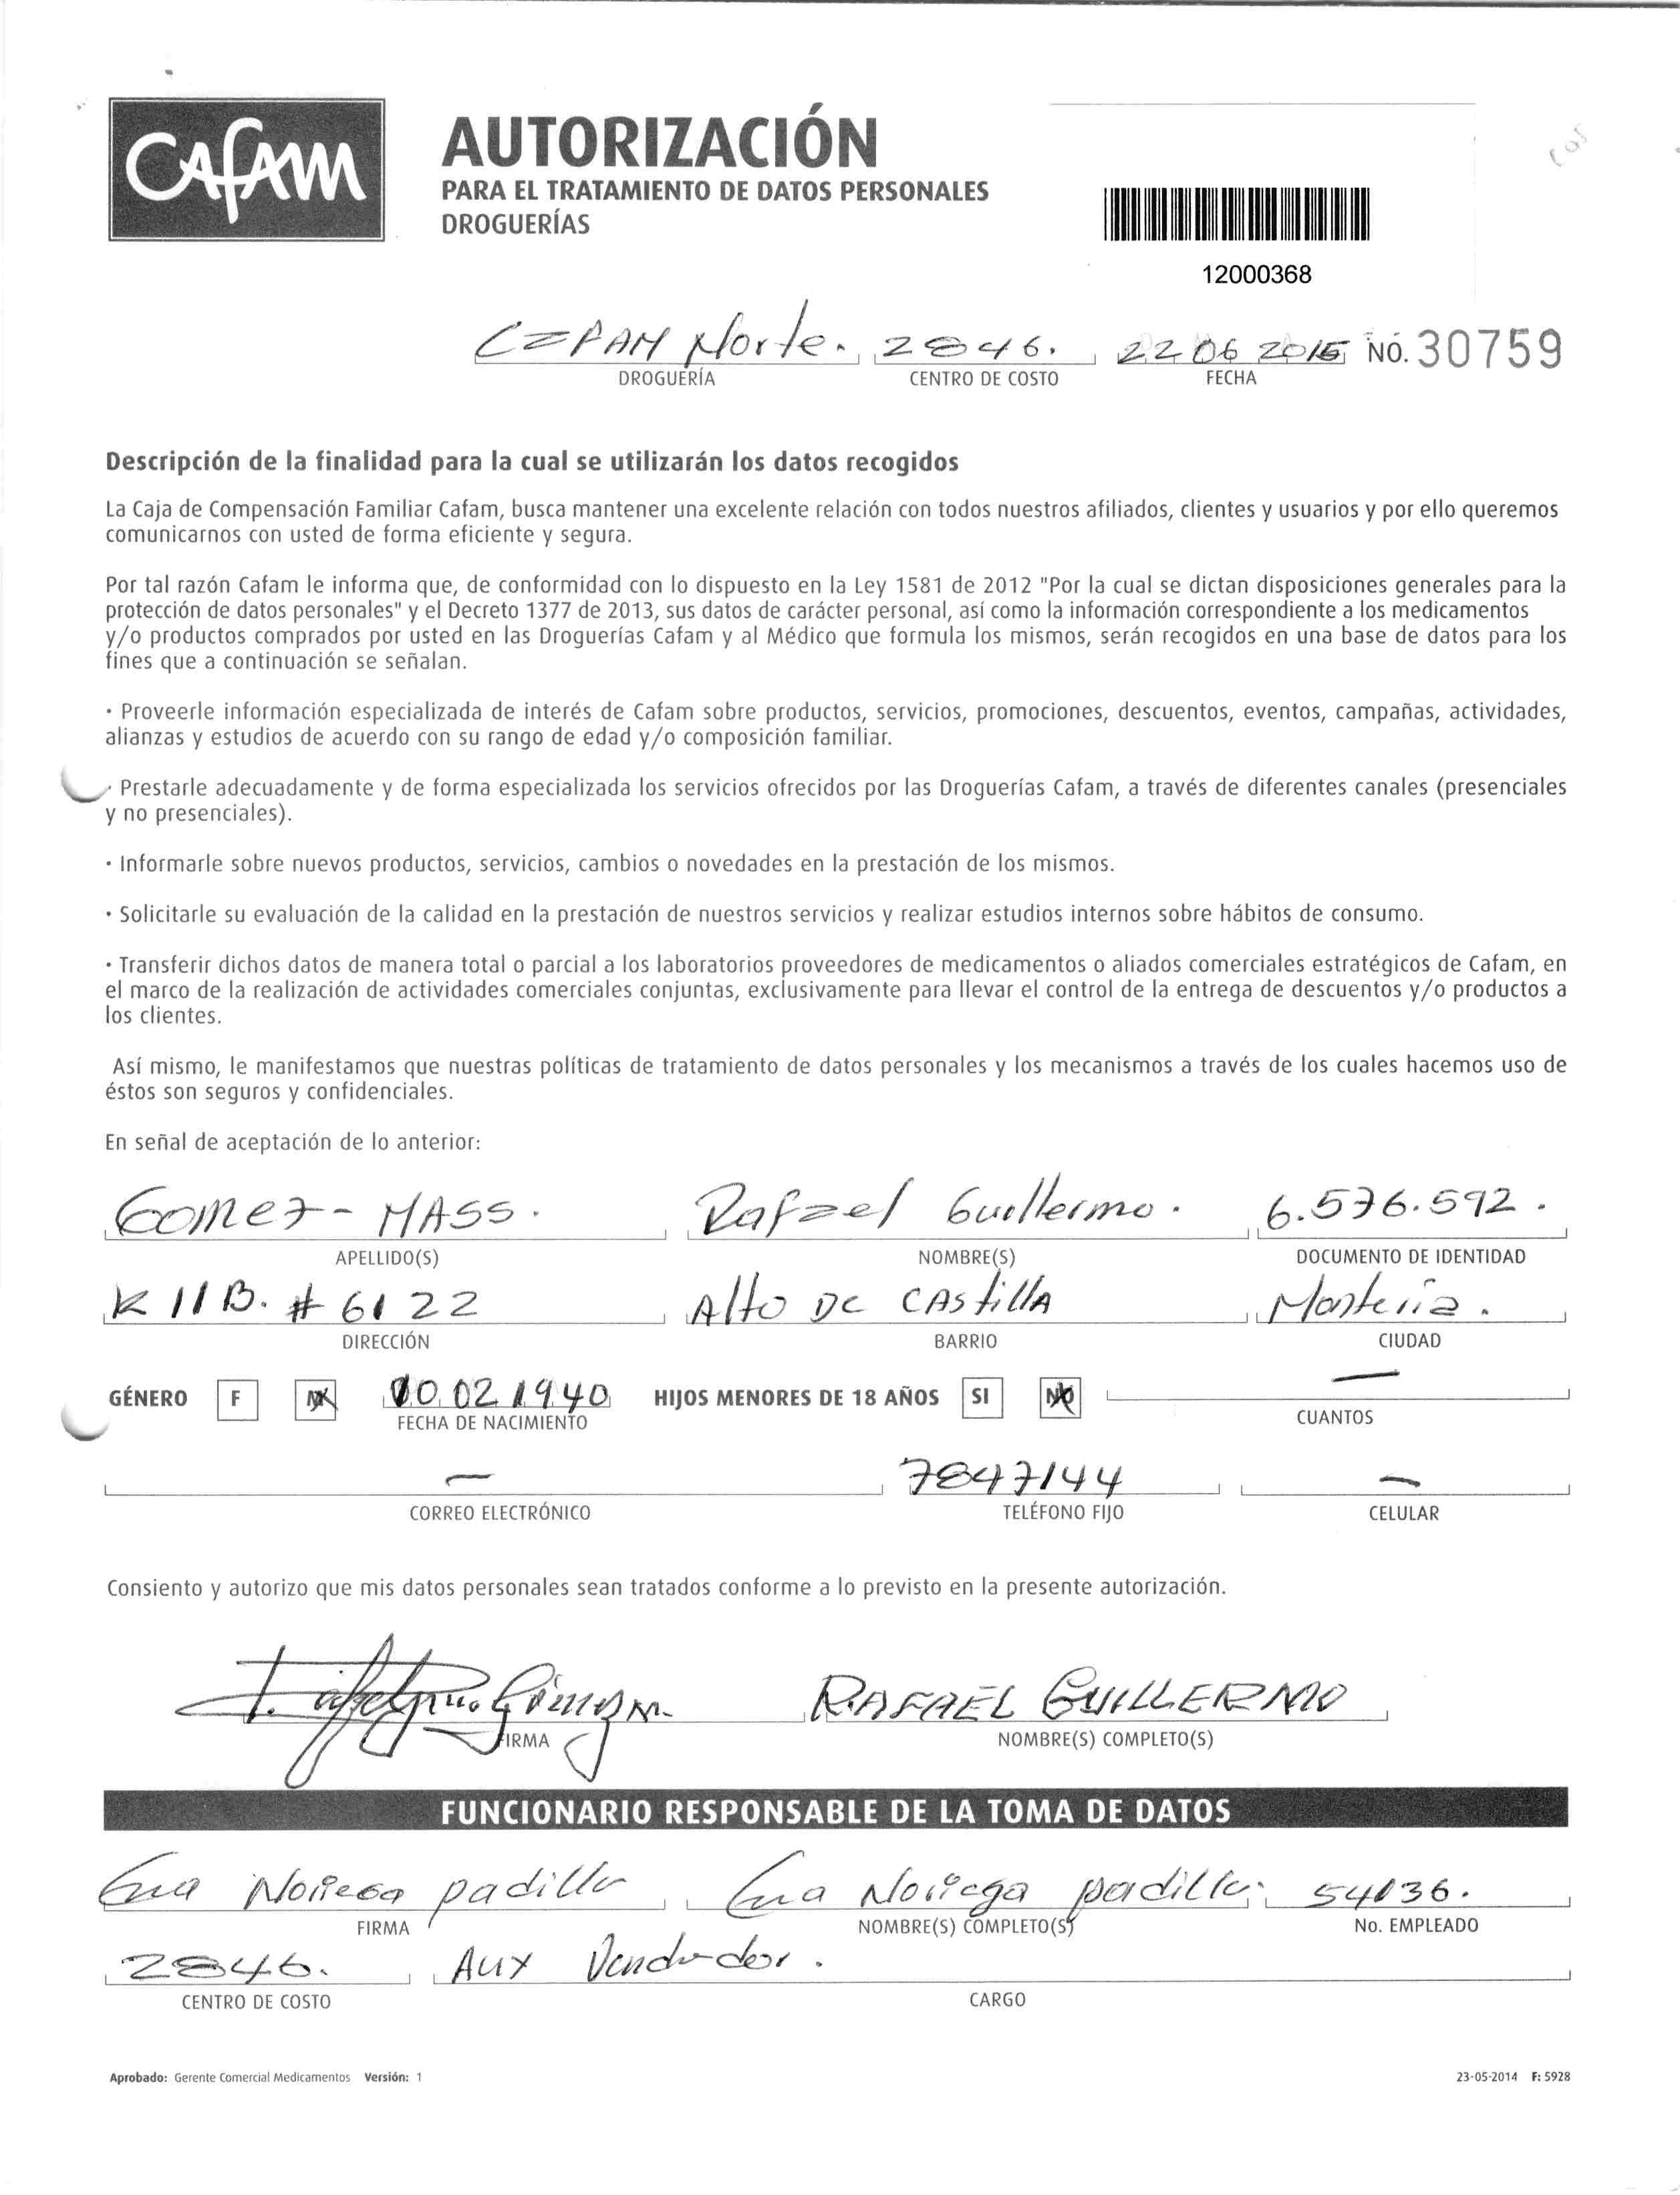 CAFAM
AUTORIZACIÓN
PARA EL TRATAMIENTO DE DATOS PERSONALES
DROGUERÍAS
12000368
CAFAM Norte. 2846. 22 06 2015 NO. 30759
DROGUERÍA CENTRO DE COSTO FECHA
Descripción de la finalidad para la cual se utilizarán los datos recogidos
La Caja de Compensación Familiar Cafam, busca mantener una excelente relación con todos nuestros afiliados, clientes y usuarios y por ello queremos
comunicarnos con usted de forma eficiente y segura.
Por tal razón Cafam le informa que, de conformidad con lo dispuesto en la Ley 1581 de 2012 "Por la cual se dictan disposiciones generales para la
protección de datos personales" y el Decreto 1377 de 2013, sus datos de carácter personal, así como la información correspondiente a los medicamentos
y/o productos comprados por usted en las Droguerías Cafam y al Médico que formula los mismos, serán recogidos en una base de datos para los
fines que a continuación se señalan.
· Proveerle información especializada de interés de Cafam sobre productos, servicios, promociones, descuentos, eventos, campañas, actividades,
alianzas y estudios de acuerdo con su rango de edad y/o composición familiar.
· Prestarle adecuadamente y de forma especializada los servicios ofrecidos por las Droguerías Cafam, a través de diferentes canales (presenciales
y no presenciales).
· Informarle sobre nuevos productos, servicios, cambios o novedades en la prestación de los mismos.
· Solicitarle su evaluación de la calidad en la prestación de nuestros servicios y realizar estudios internos sobre hábitos de consumo.
· Transferir dichos datos de manera total o parcial a los laboratorios proveedores de medicamentos o aliados comerciales estratégicos de Cafam, en
el marco de la realización de actividades comerciales conjuntas, exclusivamente para llevar el control de la entrega de descuentos y/o productos a
los clientes.
Así mismo, le manifestamos que nuestras políticas de tratamiento de datos personales y los mecanismos a través de los cuales hacemos uso de
éstos son seguros y confidenciales.
En señal de aceptación de lo anterior:
Gomez - MASS. Rafael Guillermo. 6.576.592.
APELLIDO(S) NOMBRE(S) DOCUMENTO DE IDENTIDAD
K 11 B. # 61 22 Alto De CAstillA Montería.
DIRECCIÓN BARRIO CIUDAD
GÉNERO F M 10 02 1940 HIJOS MENORES DE 18 AÑOS SI NO —
FECHA DE NACIMIENTO CUANTOS
— 7847144 —
CORREO ELECTRÓNICO TELÉFONO FIJO CELULAR
Consiento y autorizo que mis datos personales sean tratados conforme a lo previsto en la presente autorización.
RAFAEL GUILLERMO
FIRMA NOMBRE(S) COMPLETO(S)
FUNCIONARIO RESPONSABLE DE LA TOMA DE DATOS
Noriega padilla Noriega padilla 54136.
FIRMA NOMBRE(S) COMPLETO(S) No. EMPLEADO
2846. Aux Vendedor.
CENTRO DE COSTO CARGO
Aprobado: Gerente Comercial Medicamentos Versión: 1 23-05-2014 F: 5928